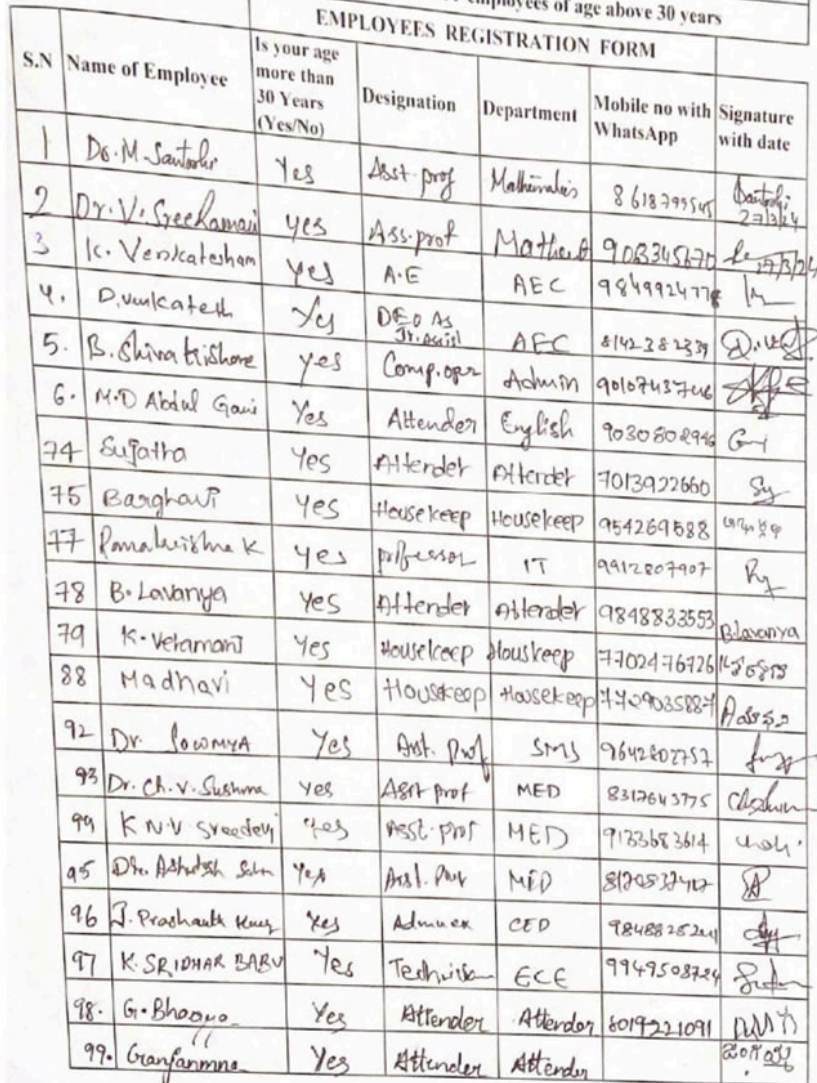 employees of age above 30 years
EMPLOYEES REGISTRATION FORM
S.N Name of Employee Is your age more than 30 Years (Yes/No) Designation Department Mobile no with WhatsApp Signature with date
1 Dr. M. Santoshi Yes Asst. prof Mathematics 8618799545 Santoshi 27/3/24
2 Dr. V. Sreeramani yes Ass. prof 27/3/24
3 K. Venkatesham yes A.E AEC
4. D. Venkatesh Yes DEO As Jr. Assist AEC 8142382339
5. B. Shiva Kishore yes Comp. oper Admin
6. M.D Abdul Gani Yes Attender English 9030802946
74 Sujatha Yes Attender Attender 7013922660 Sy
75 Barghavi yes Housekeep Housekeep 954269588
77 Ramakrishna K yes professor IT 9912807907
78 B. Lavanya Yes Attender Attender 9848833553 B.Lavanya
79 K. Veramani Yes Housekeep Houskeep 7702476726
88 Madhavi Yes Houskeep Housekeep
92 Dr. Sowmya Yes Asst. Prof SMS 9642802757
93 Dr. Ch. V. Sushma yes Asst prof MED 8317643775
94 K N.V Sreedevi Yes Asst. prof MED 9133683614
95 Dr. Ashutosh Yes Asst. Prof MED
96 J. Prashanth Yes CED
97 K. SRIDHAR BABU Yes ECE 9949508724
98. G. Bhagya Yes Attender Attender 6019221091
99. Yes Attender Attender